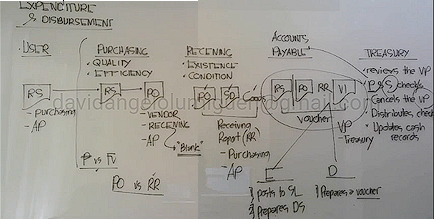 EXPENDITURE
& DISBURSEMENT
• USER
PURCHASING
• QUALITY
• EFFICIENCY
RECEIVING
• EXISTENCE
• CONDITION
ACCOUNTS
PAYABLE
TREASURY
• reviews the VP
& checks
• Cancels the VP
• Distributes check
• Updates cash
records
RS
RS
PO
PO
SD
goods
RS
PO
RR
VI
voucher
- Purchasing
- AP
- VENDOR
- RECEIVING
- AP
"Blank"
Receiving
Report (RR)
- Purchasing
- AP
VP
- Treasury
P vs TV
PO vs RR
E
1) posts to SL
2) Prepares DS
D
1) Prepares a voucher